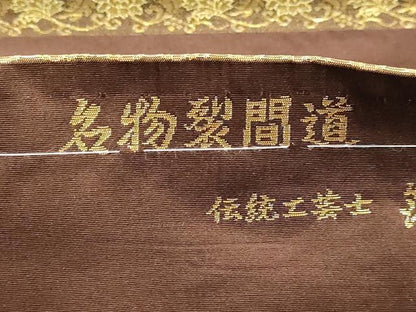 名物裂間道
伝統工芸士